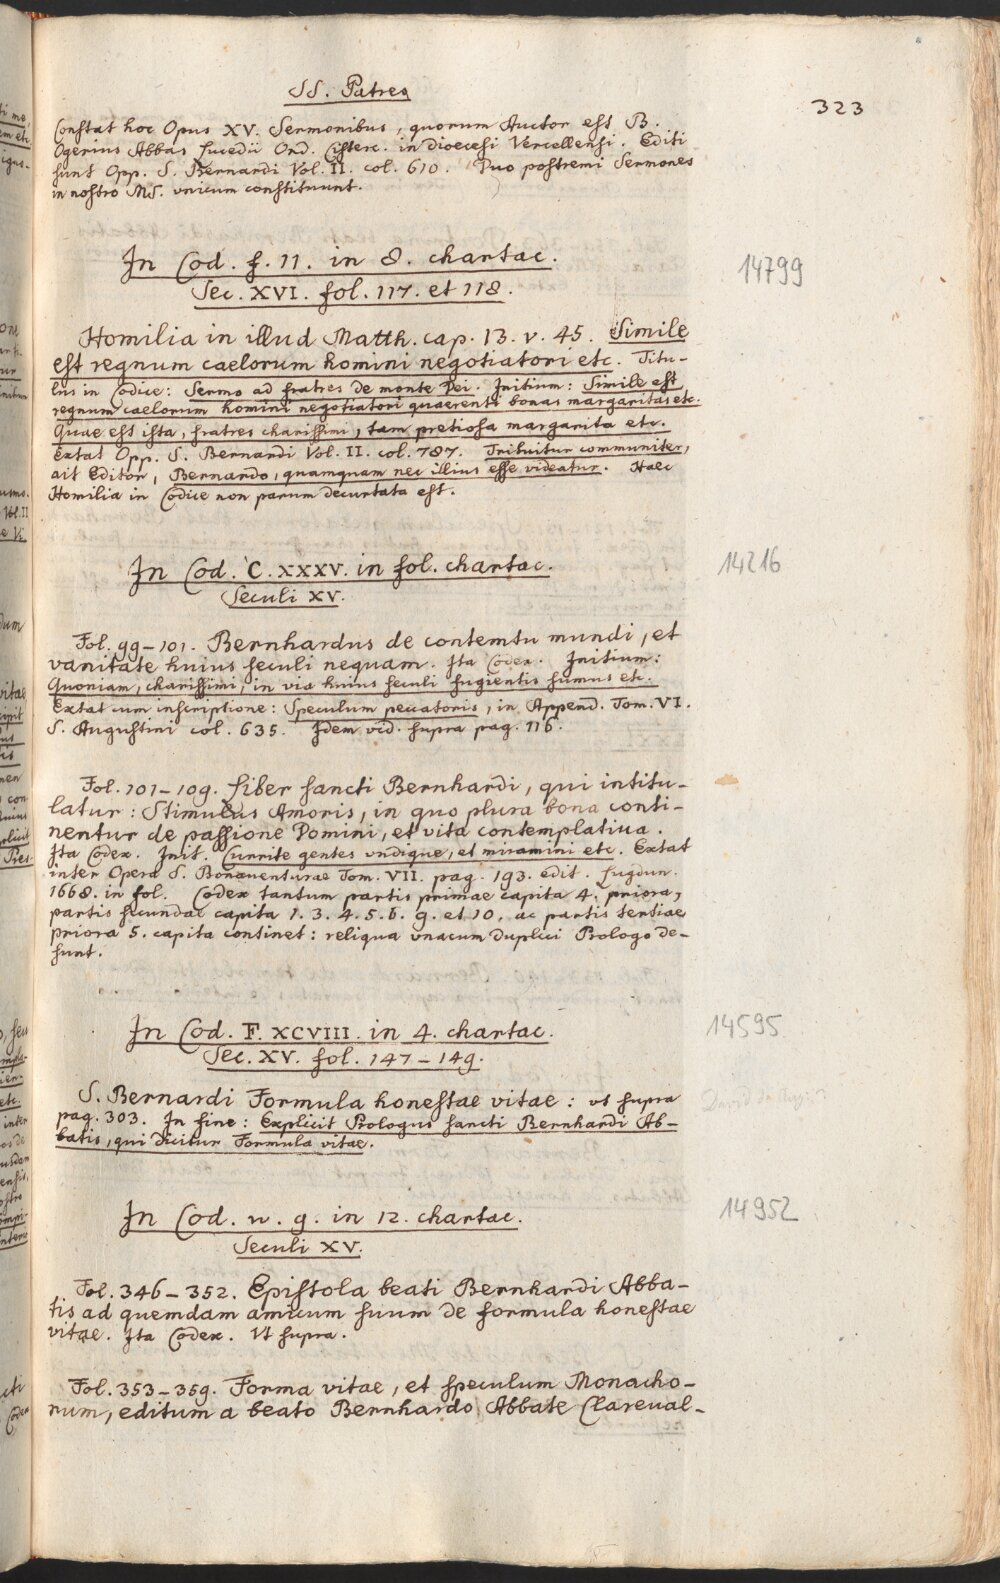 SS. Patres
323
Constat hoc Opus XV. Sermonibus, quorum Auctor est B.
Ogerius Abbas Lucedii Ord. Cisterc. in dioecesi Vercellensi. Editi
sunt Opp. S. Bernardi Vol. II. col. 610. Duo postremi Sermones
in nostro MS. vnicum constituunt.
In Cod. f. 11. in 8. chartac.
14799
Sec. XVI. fol. 117. et 118.
Homilia in illud Matth. cap. 13. v. 45. Simile
est regnum caelorum homini negotiatori etc. Titu-
lus in Codice: Sermo ad fratres de monte Dei. Initium: Simile est
regnum caelorum homini negotiatori quaerenti bonas margaritas etc.
Quae est ista, fratres charissimi, tam pretiosa margarita etc.
Extat Opp. S. Bernardi Vol. II. col. 787. Tribuitur communiter,
ait Editor, Bernardo, quamquam nec illius esse videatur. Haec
Homilia in Codice non parum decurtata est.
In Cod. C. XXXV. in fol. chartac.
14216
Seculi XV.
Fol. 99-101. Bernhardus de contemtu mundi, et
vanitate huius seculi nequam. Ita Codex. Initium:
Quoniam, charissimi, in via huius seculi fugientis sumus etc.
Extat cum inscriptione: Speculum peccatoris, in Append. Tom. VI.
S. Augustini col. 635. Idem vid. supra pag. 116.
Fol. 101-109. Liber sancti Bernhardi, qui intitu-
latur: Stimulus Amoris, in quo plura bona conti-
nentur de passione Domini, et vita contemplatiua.
Ita Codex. Init. Currite gentes vndique, et miramini etc. Extat
inter Opera S. Bonauenturae Tom. VII. pag. 193. edit. Lugdun.
1668. in fol. Codex tantum partis primae capita 4. priora,
partis secundae capita 1. 3. 4. 5. 6. 9. et 10. ac partis tertiae
priora 5. capita continet: reliqua vnacum duplici Prologo de-
sunt.
In Cod. F. XCVIII. in 4. chartac.
14595
Sec. XV. fol. 147-149.
S. Bernardi Formula honestae vitae: vt supra
pag. 303. In fine: Explicit Prologus sancti Bernhardi Ab-
batis, qui dicitur Formula vitae.
In Cod. n. 9. in 12. chartac.
14952
Seculi XV.
Fol. 346-352. Epistola beati Bernhardi Abba-
tis ad quemdam amicum suum de formula honestae
vitae. Ita Codex. Vt supra.
Fol. 353-359. Forma vitae, et speculum Monacho-
rum, editum a beato Bernhardo Abbate Clareual-